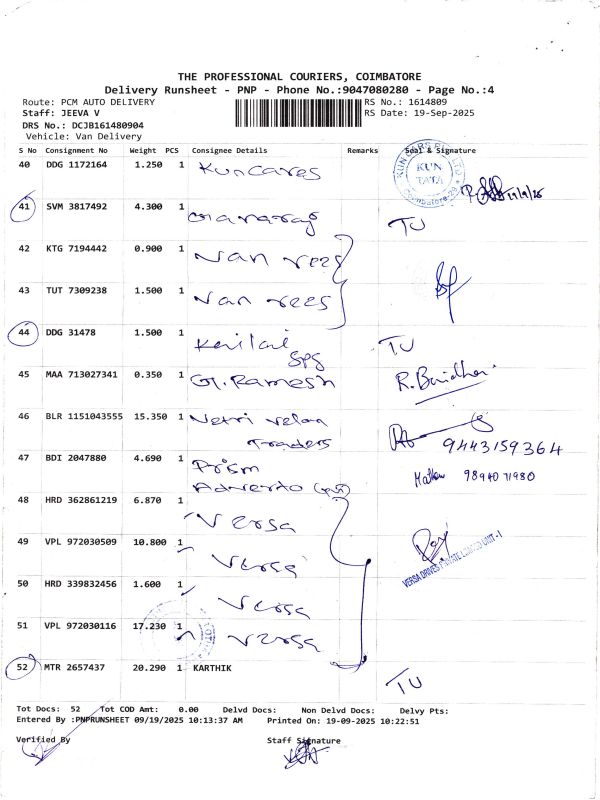 THE PROFESSIONAL COURIERS, COIMBATORE
Delivery Runsheet - PNP - Phone No.:9047080280 - Page No.:4
Route: PCM AUTO DELIVERY RS No.: 1614809
Staff: JEEVA V RS Date: 19-Sep-2025
DRS No.: DCJB161480904
Vehicle: Van Delivery
S No Consignment No Weight PCS Consignee Details Remarks Seal & Signature
40 DDG 1172164 1.250 1 KUN Cares KUN TATA
41 SVM 3817492 4.300 1 TU
42 KTG 7194442 0.900 1 Van rees
43 TUT 7309238 1.500 1 Van rees
44 DDG 31478 1.500 1 Kailai TU
Spg
45 MAA 713027341 0.350 1 G.Ramesh
46 BLR 1151043555 15.350 1 Netri velan
Traders 9443159364
47 BDI 2047880 4.690 1 Prism 9894071980
48 HRD 362861219 6.870 1
Versa
49 VPL 972030509 10.800 1 Versa
VERSA DRIVES PRIVATE LIMITED UNIT-1
50 HRD 339832456 1.600 1 Versa
51 VPL 972030116 17.230 1 Versa
52 MTR 2657437 20.290 1 KARTHIK TU
Tot Docs: 52 Tot COD Amt: 0.00 Delvd Docs: Non Delvd Docs: Delvy Pts:
Entered By :PNPRUNSHEET 09/19/2025 10:13:37 AM Printed On: 19-09-2025 10:22:51
Verified By Staff Signature